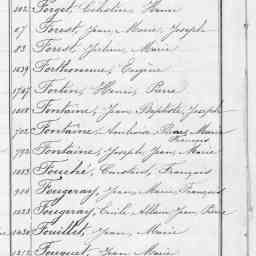 102. Forget, Célestin, Henri
67 Forest, Jean Marie, Joseph
83 Forest, Julien, Marie
1639 Forthomme, Eugène
1707 Fortin, Henri, Pierre
1018 Fontaine, Jean Baptiste, Joseph
702 Fontaine, Ambroise Marie
François
792 Fontaine, Joseph Jean, Marie
1083 Fouché, Constant, François
910 Fougeray, Jean, Marie François
1223 Fougeray, Emile Albein Jean Pierre
1430 Fouillet, Jean, Marie
1212 Fouquet, Jean Marie